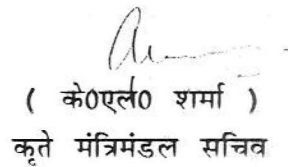 ( के0एल0 शर्मा )
कृते मंत्रिमंडल सचिव